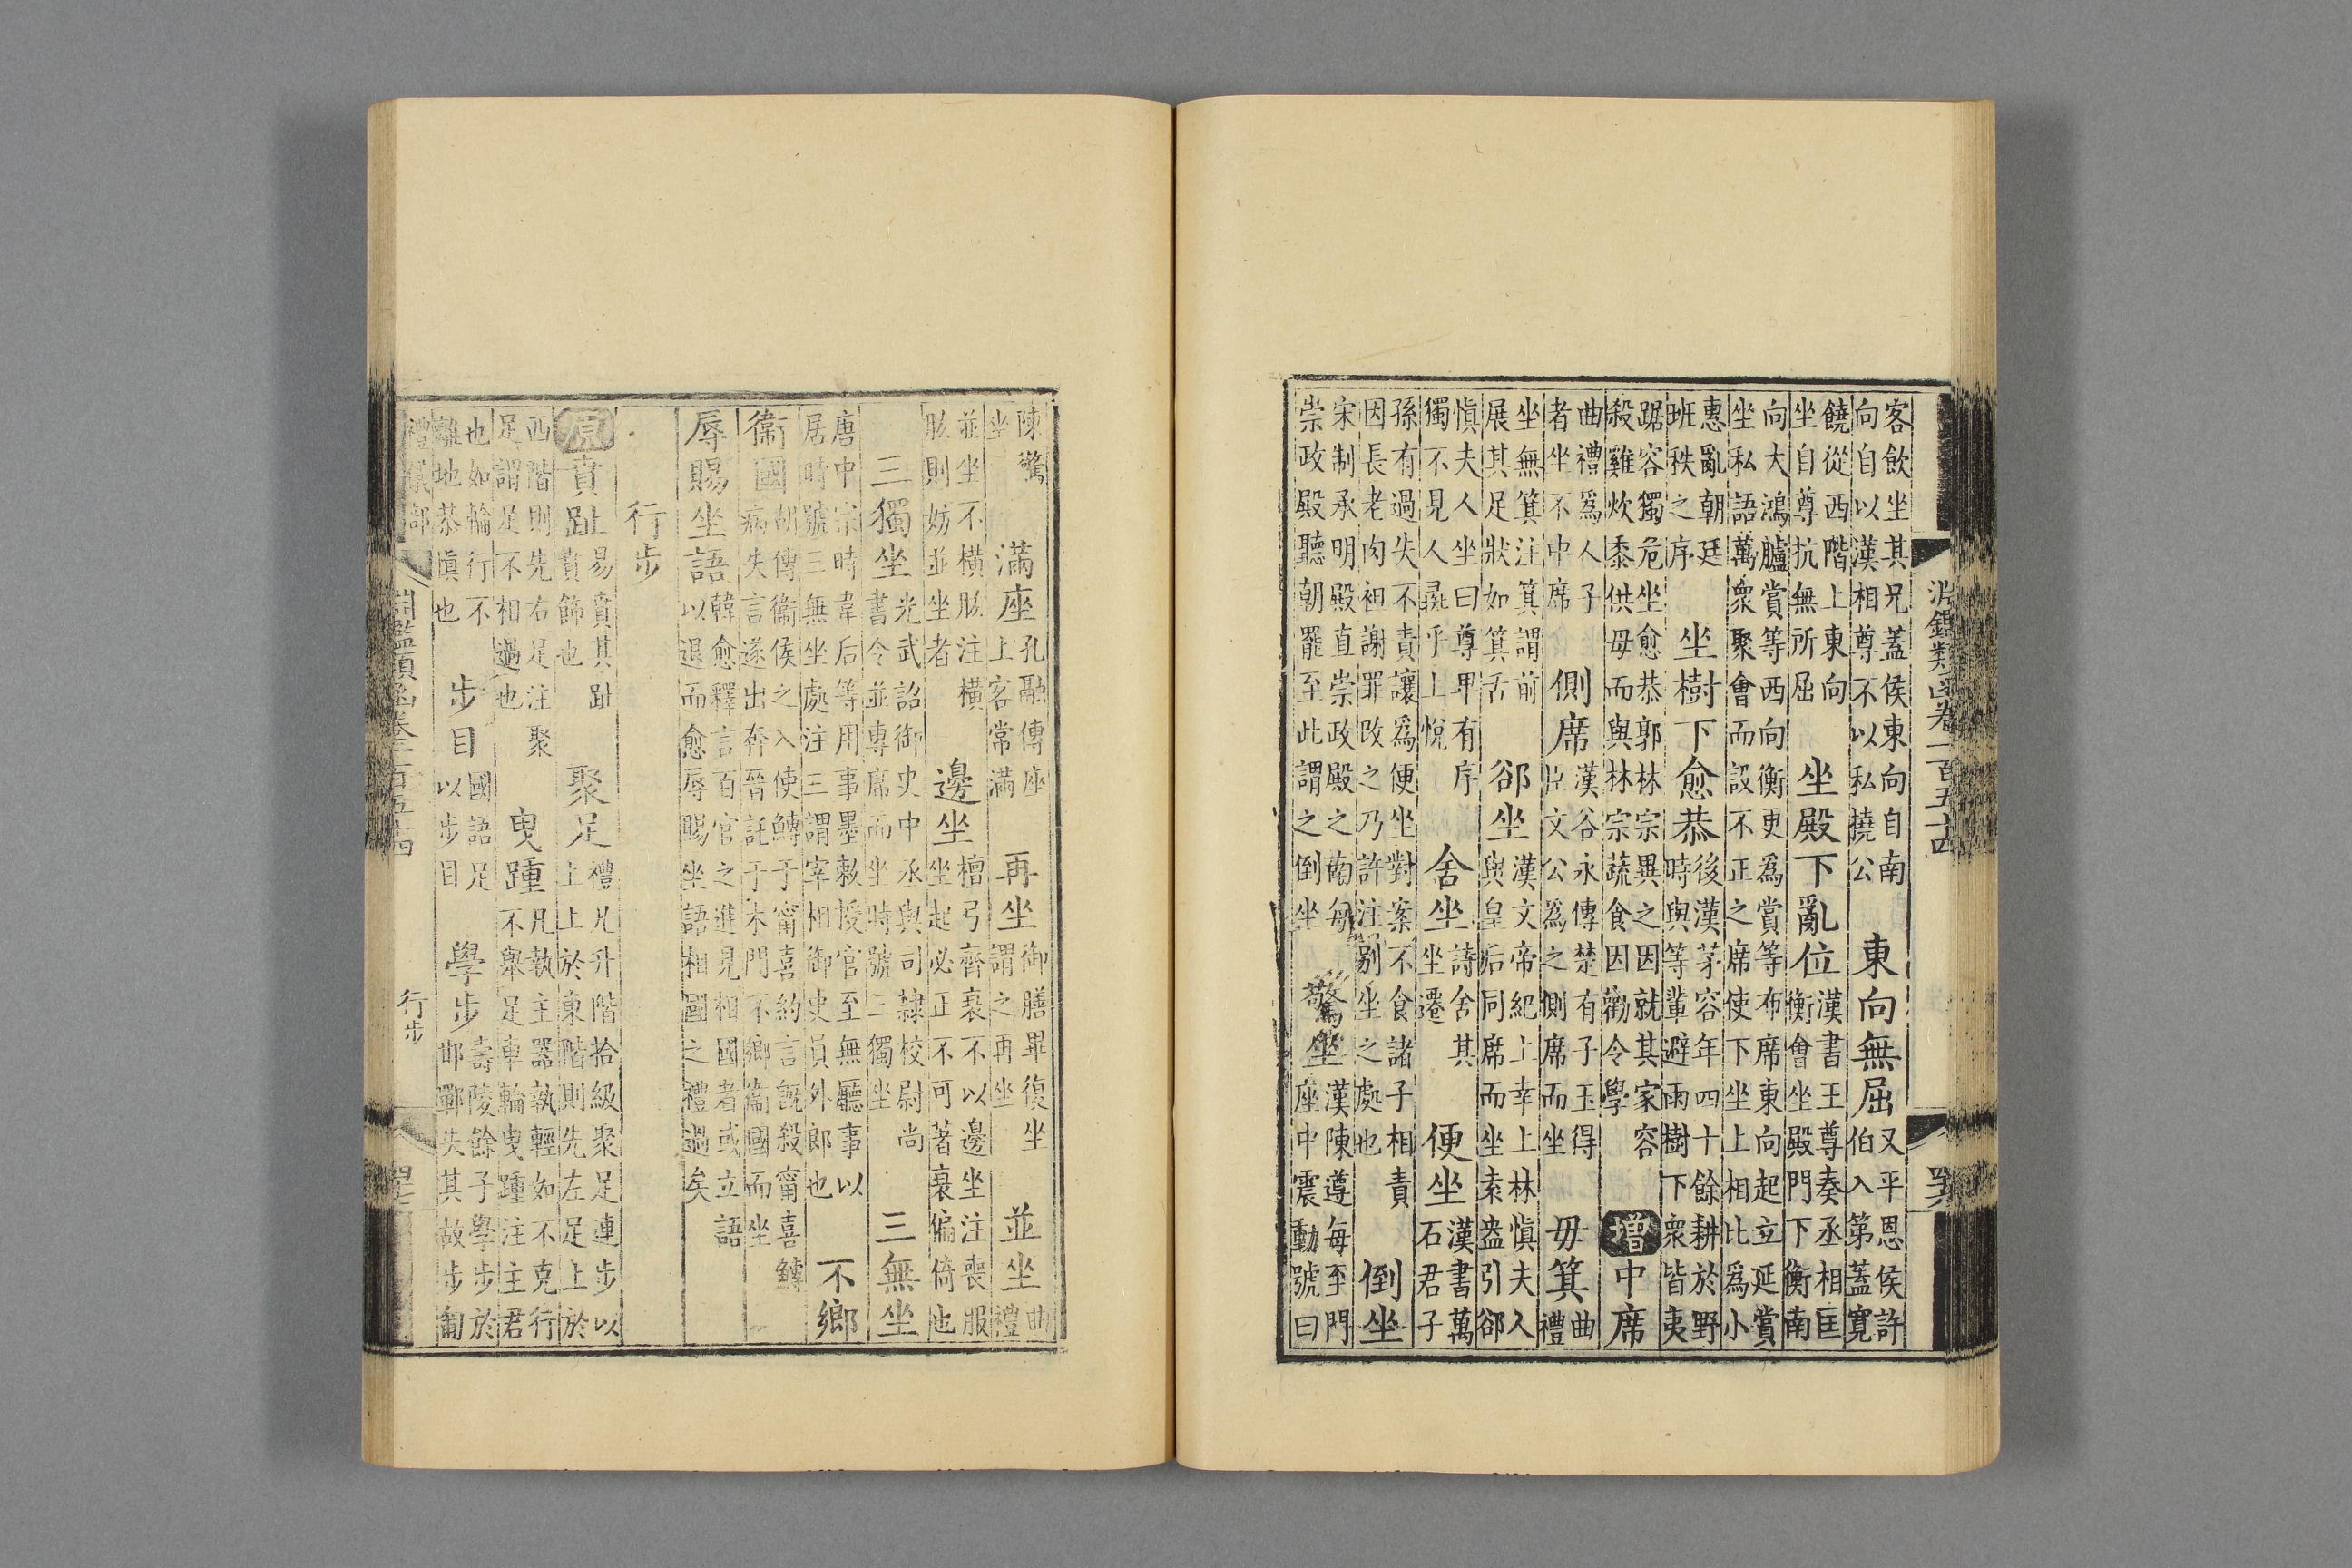 淵鑑類函卷二百五十四
客飲坐其兄蓋侯東向自南向自以漢相尊不以私撓公　東向無屈　又平恩侯許伯入第蓋寬
饒從西階上東向坐自尊抗無所屈　坐殿下亂位　漢書王尊奏丞相匡衡會坐殿門下衡南
向大鴻臚賞等西向衡更為賞等布席東向起立延賞坐私語萬衆聚會而設不正之席使下坐上相比為小
惠亂朝廷班秩之序　坐樹下愈恭　後漢茅容年四十餘耕於野時與等輩避雨樹下衆皆夷
踞容獨危坐愈恭郭林宗異之因就其家容殺雞炊黍供母而與林宗蔬食因勸令學　增　中席
曲禮爲人子者坐不中席　側席　漢谷永傳楚有子玉得臣文公為之側席而坐　毋箕　曲禮
坐無箕注箕謂前展其足狀如箕舌　郤坐　漢文帝紀上幸上林慎夫人與皇后同席而坐袁盎引郤
慎夫人坐曰尊卑有序獨不見人彘乎上悅　舍坐　詩舍其坐遷　便坐　漢書萬石君子
孫有過失不責讓為便坐對案不食諸子相責因長老肉袒謝罪改之乃許注別坐之處也　倒坐
宋制承明殿直崇政殿之南每崇政殿聽朝罷至此謂之倒坐　驚坐　漢陳遵每至門座中震動號曰
陳驚坐　滿座　孔融傳座上客常滿　再坐　御膳畢復坐謂之再坐　並坐　曲禮
並坐不橫肱注橫肱則妨並坐者　邊坐　檀弓齊衰不以邊坐注喪服坐起必正不可著衰偏倚也
三獨坐　光武詔御史中丞與司隸校尉尚書令並專席而坐時號三獨坐　三無坐
唐中宗時韋后等用事墨敕授官至無廳事以居時號三無坐處注三謂宰相御史員外郎也　不鄉
衞國　胡傳衞侯之入使鱄于甯喜約言既殺甯喜鱄病失言遂出奔晉託于木門不鄉衞國而坐
辱賜坐語　韓愈釋言百官之進見相國者或立語以退而愈辱賜坐語相國之禮過矣
行步
原　賁趾　易賁其趾賁飾也　聚足　禮凡升階拾級聚足連步以上上於東階則先左足上於
西階則先右足注聚足謂足不相過也　曳踵　凡執主器執輕如不克行不舉足車輪曳踵注主君
也如輪行不離地恭慎也　步目　國語足以步目　學步　壽陵餘子學步於邯鄲失其故步匍
禮儀部　淵鑑類函卷二百五十四　行步